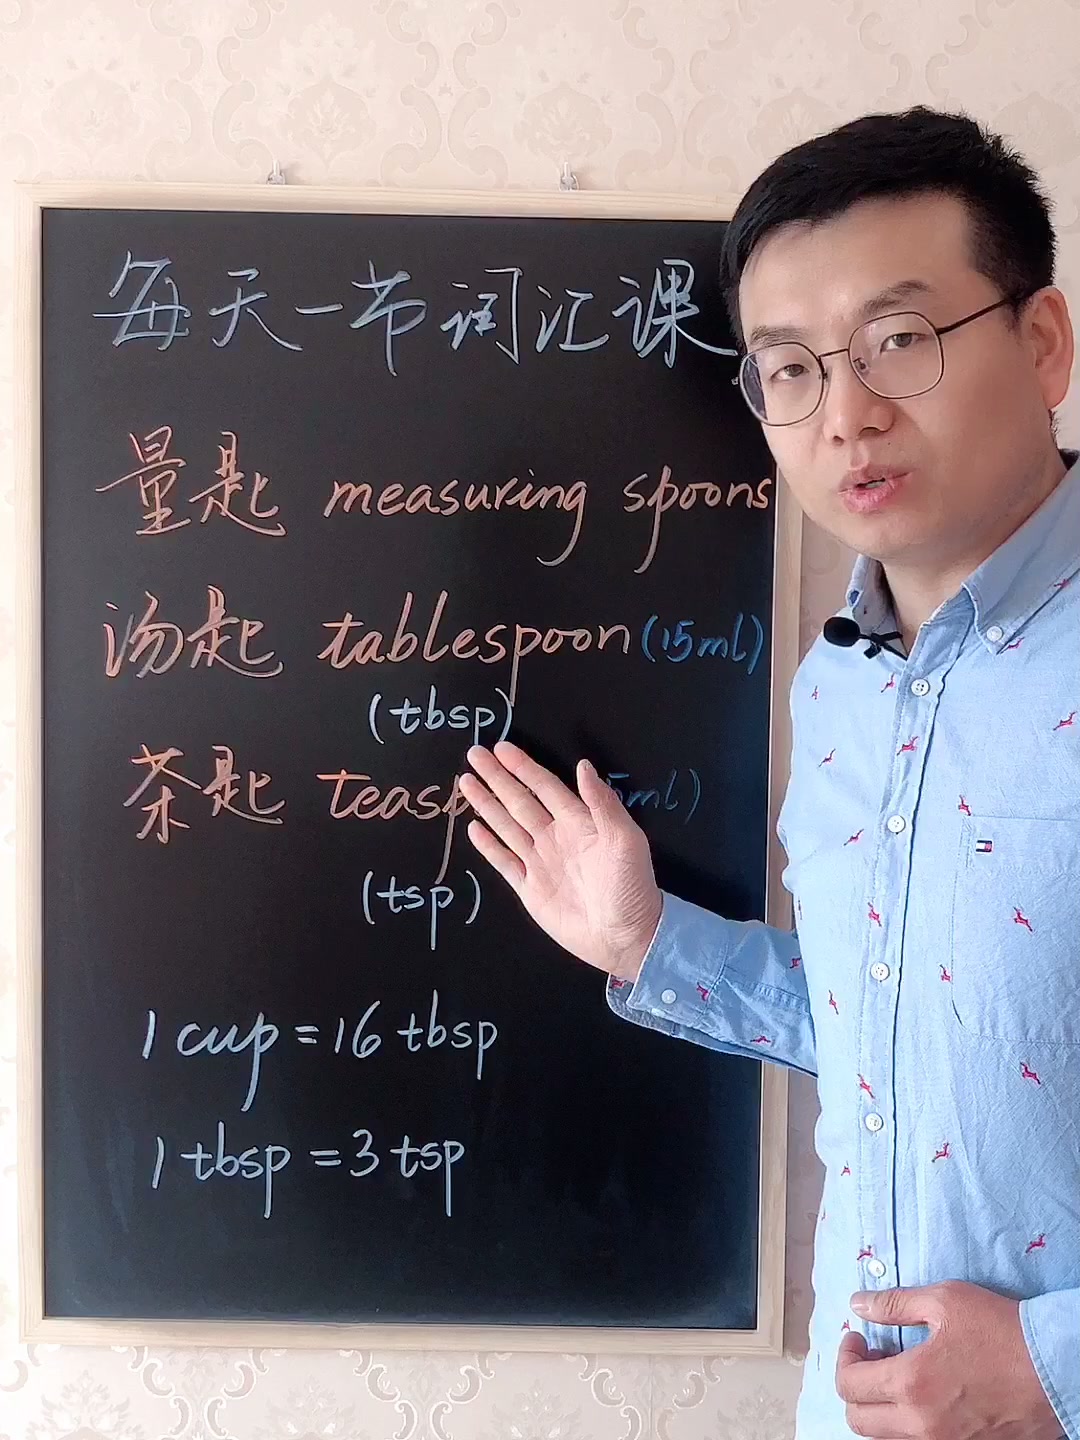 每天一节词汇课
量匙 measuring spoons
汤匙 tablespoon (15ml)
(tbsp)
茶匙 teasp 5ml)
(tsp)
1 cup = 16 tbsp
1 tbsp = 3 tsp